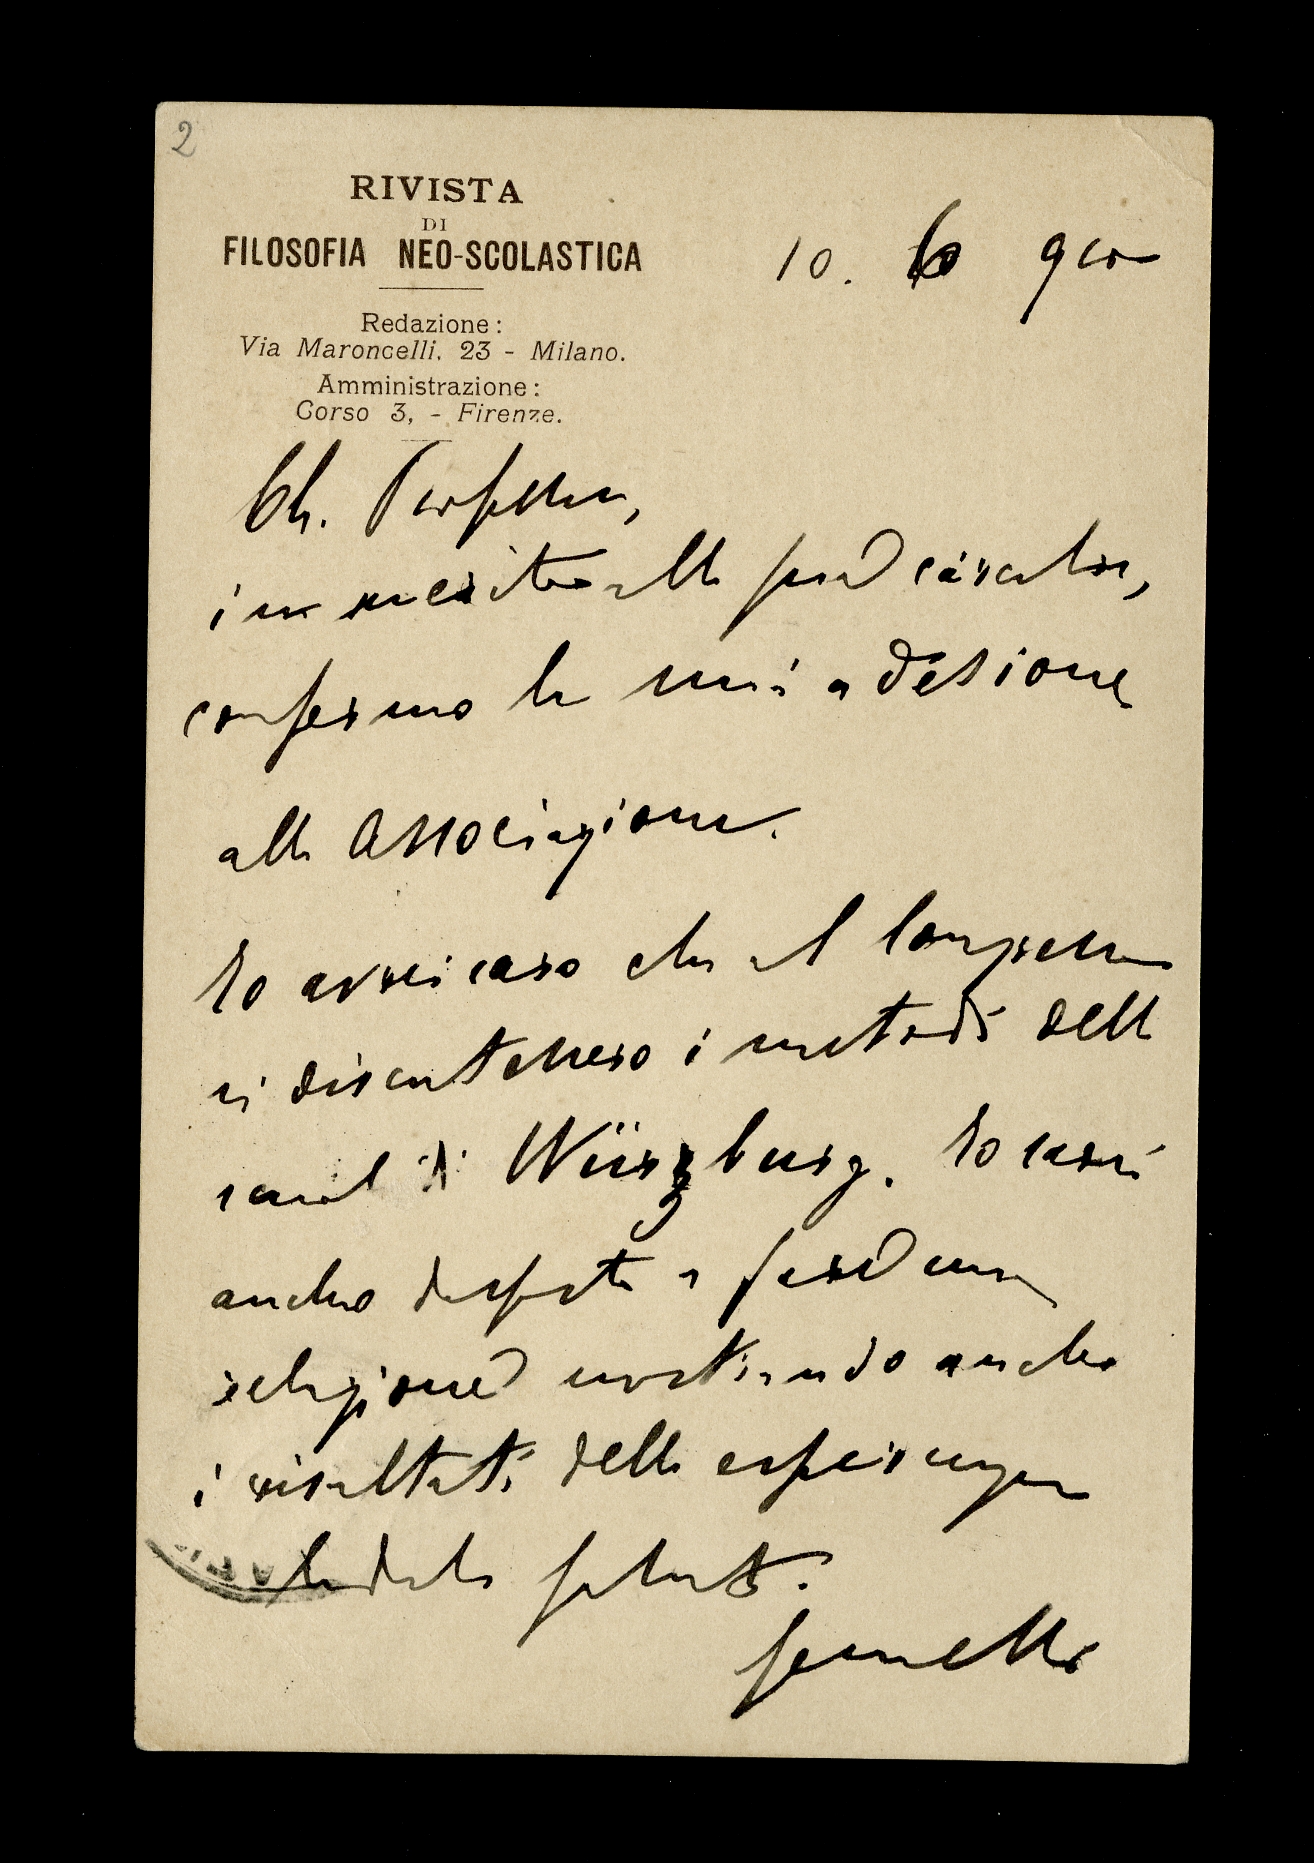 2
RIVISTA
DI
FILOSOFIA NEO-SCOLASTICA
Redazione:
Via Maroncelli, 23 - Milano.
Amministrazione:
Corso 3, - Firenze.
10. 6 910
Ch. Professore,
in merito alla sua circolare,
confermo la mia adesione
alla Associazione.
Io avrei caro che al Congresso
si discutessero i metodi della
scuola di Würzburg. Io sarei
anche disposto a fare una
relazione mostrando anche
i risultati delle esperienze
saluti.
Gemelli